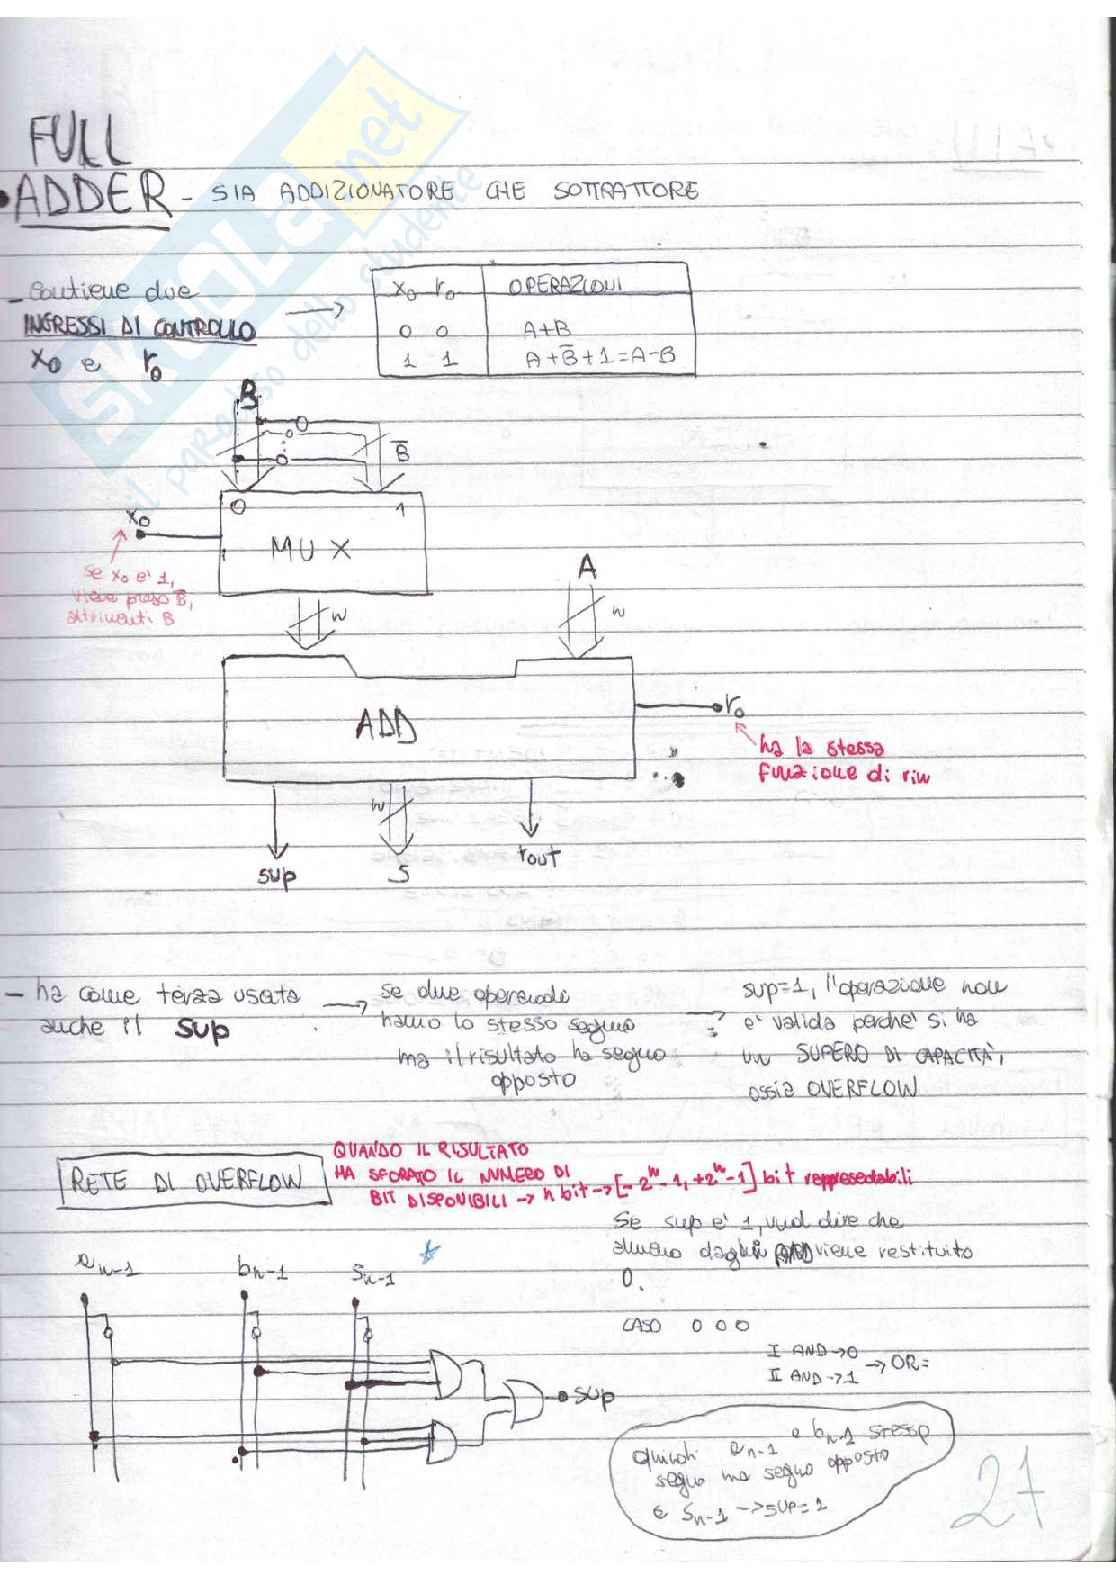 FULL
• ADDER - SIA ADDIZIONATORE CHE SOTTRATTORE
- contiene due
INGRESSI DI CONTROLLO
x0 e r0
x0 r0 OPERAZIONI
0 0 A+B
1 1 A+B̅+1=A-B
B
B̅
x0
0 1
MUX
se x0 e' 1,
viene preso B̅,
altrimenti B
n
A
n
ADD
r0
ha la stessa
funzione di rin
n
sup
S
rout
- ha come terza uscita
anche il sup
→ se due operandi
hanno lo stesso segno
ma il risultato ha segno
opposto
→ sup=1, l'operazione non
e' valida perche' si ha
un SUPERO DI CAPACITÀ,
ossia OVERFLOW
RETE DI OVERFLOW
QUANDO IL RISULTATO
HA SFORATO IL NUMERO DI
BIT DISPONIBILI → n bit → [-2^n-1, +2^n-1] bit
Se sup e' 1, vuol dire che
viene restituito
0.
an-1 bn-1 sn-1
sup
CASO 0 0 0
I AND → 0
II AND → 1
→ OR=
quindi an-1 e bn-1 stesso
segno ma segno opposto
e sn-1 -> sup=1
27
SKUOLA.net
il paradiso dello studente